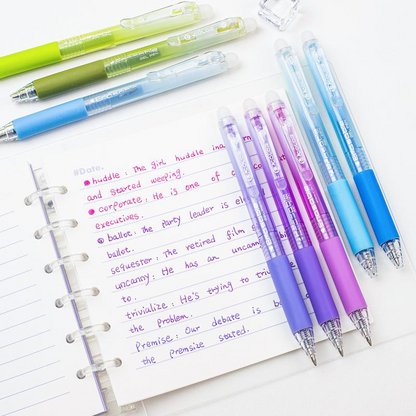 #Date.
huddle: The girl huddle in a
and started weeping.
corporate: He is one of
executives.
ballot: the party leader is el
ballot.
sequester: The retired film
uncanny: He has an uncanny
to.
trivialize: He's trying to triv
the problem.
Premise: Our debate is b
the premsize stated.